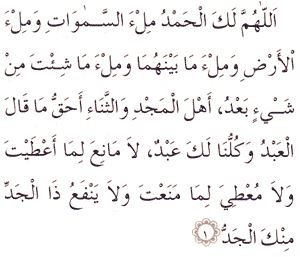 اَللّٰهُمَّ لَكَ الْحَمْدُ مِلْءَ السَّـمٰوَاتِ وَمِلْءَ
الْأَرْضِ وَمِلْءَ مَا بَيْنَهُمَا وَمِلْءَ مَا شِـئْتَ مِنْ
شَـيْءٍ بَعْدُ، أَهْلَ الْمَجْدِ وَالثَّنَاءِ أَحَقُّ مَا قَالَ
الْعَبْدُ وَكُلُّنَا لَكَ عَبْدٌ، لَا مَانِعَ لِمَا أَعْطَيْتَ
وَلَا مُعْطِيَ لِمَا مَنَعْتَ وَلَا يَنْفَعُ ذَا الْجَدِّ
مِنْكَ الْجَدُّ ١